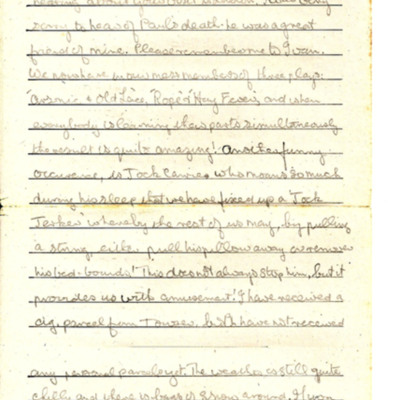 sorry to hear of Paul's death - he was a great
friend of mine. Please remember me to Ivan.
We now have in our mess members of three plays:
'Arsenic & Old Lace', 'Rope' & 'Hay Fever', and when
everybody is learning their parts simultaneously
the result is quite amazing! Another funny
occurence, is Jock Carrie who moans so much
during his sleep that we have fixed up a 'Jock
Jerker' whereby the rest of us may, by pulling
a string, either pull his pillow away or remove
his bed-boards! This doesn't always stop him, but it
provides us with amusement! I have received a
cig. parcel from but have not received
any personal parcels yet. The weather is still quite
chilly and there is snow around. I